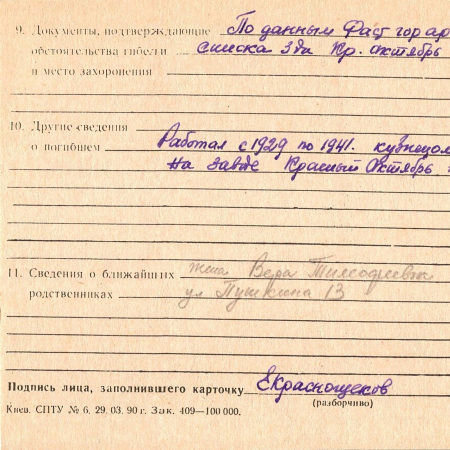 9. Документы, подтверждающие По данным Фаст гор ар
обстоятельства гибели списка Зда Кр. Октябрь
и место захоронения
10. Другие сведения
о погибшем Работал с 1929 по 1941. кузнецом
на заводе Красный Октябрь
11. Сведения о ближайших жена Вера Тимофеевн
родственниках ул Пушкина 13
Подпись лица, заполнившего карточку ЕКраснощеков
(разборчиво)
Киев. СПТУ № 6. 29. 03. 90 г. Зак. 409—100 000.